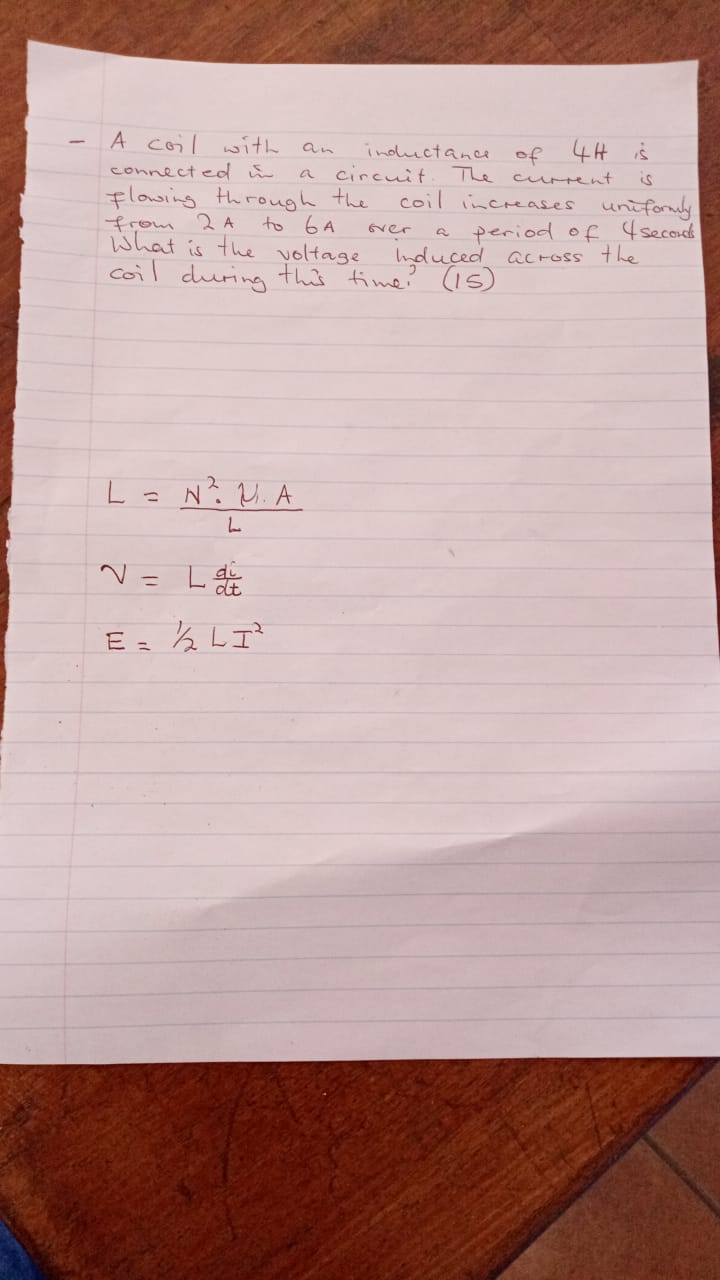 - A coil with an inductance of 4H is
connected in a circuit. The current is
flowing through the coil increases uniformly
from 2A to 6A over a period of 4 seconds
What is the voltage induced across the
coil during this time? (15)
L = N². μ. A
L
V = L di
dt
E = ½ LI²